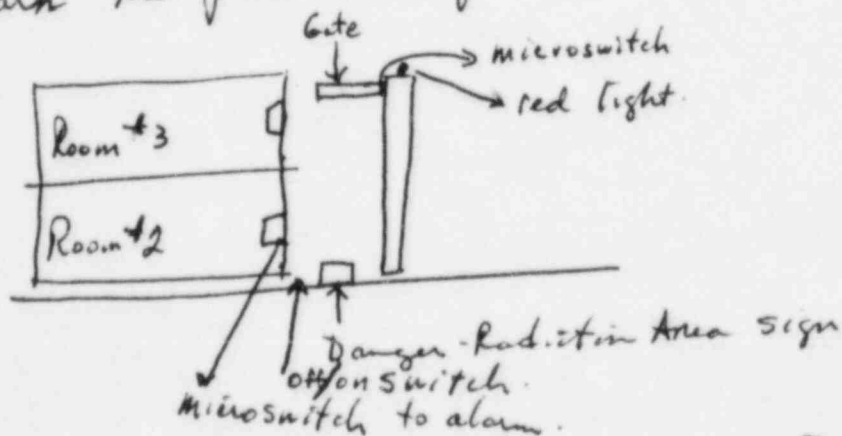 Gate
microswitch
red light.
Room #3
Room #2
Danger - Radiation Area sign
off/on switch.
microswitch to alarm.